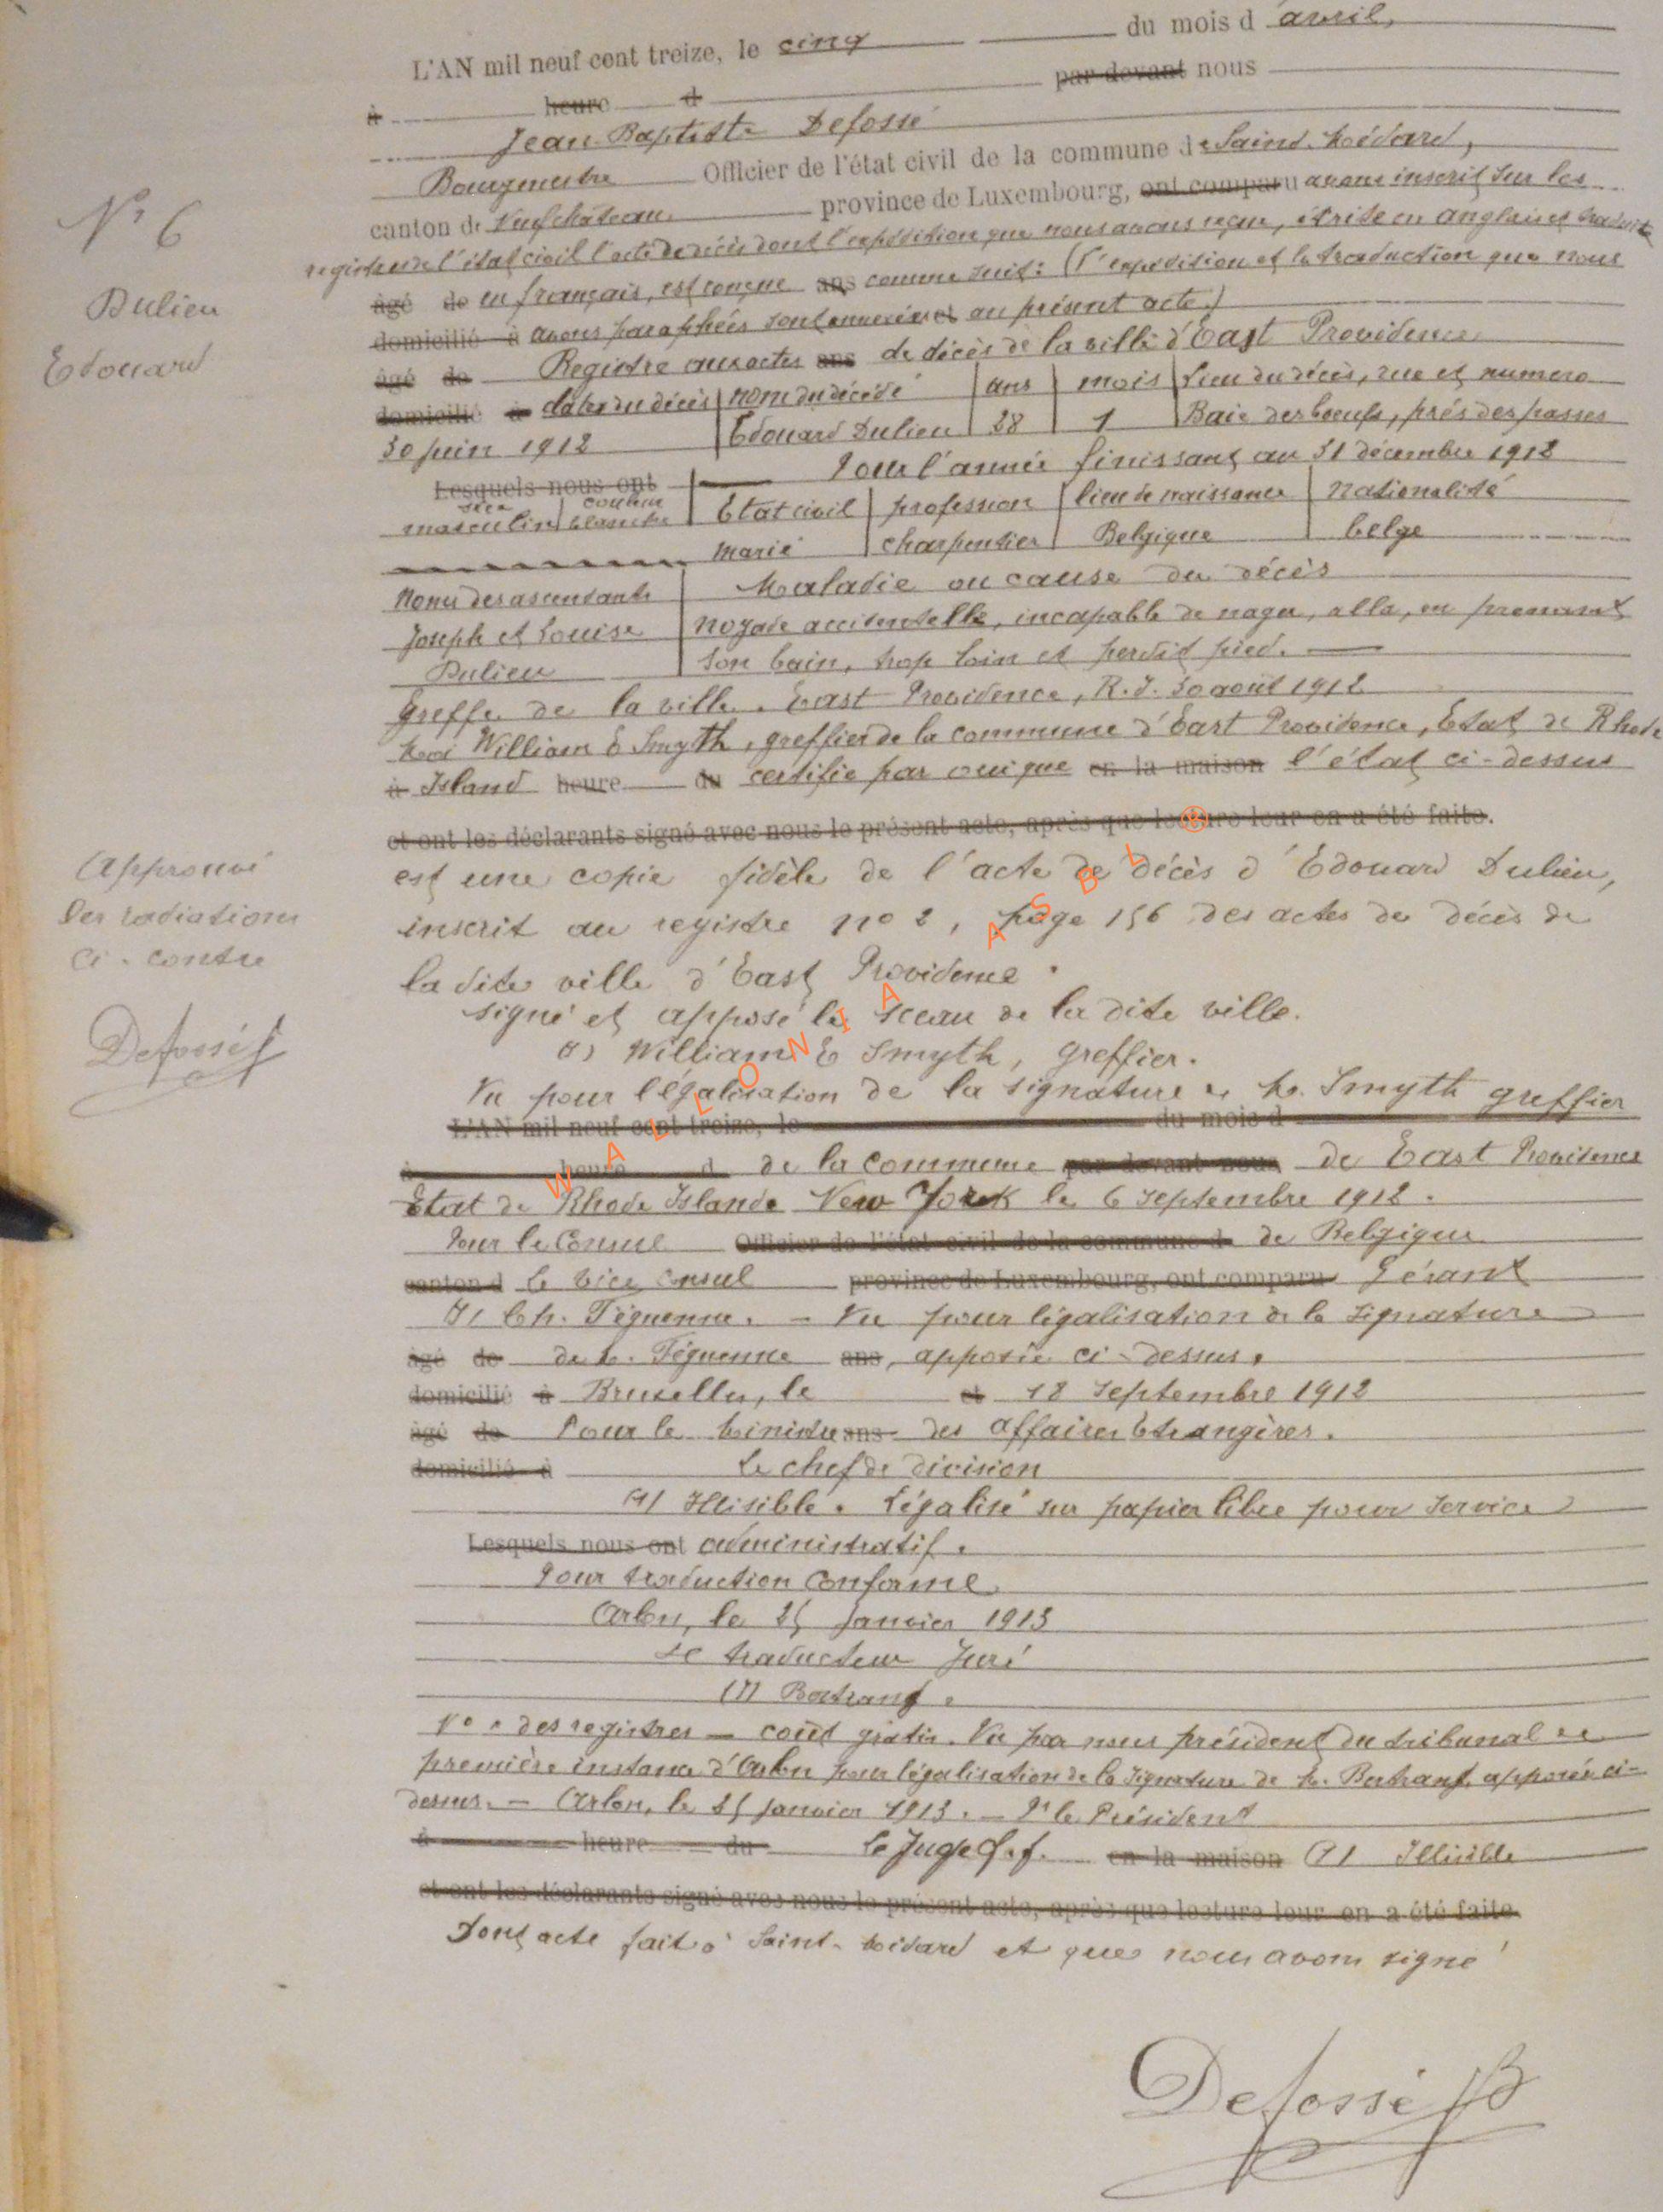 L'AN mil neuf cent treize, le cinq du mois d avril,
à heure d par devant nous
Jean-Baptiste Defossé
Bourgmestre Officier de l'état civil de la commune de Saint-Médard,
canton de Neufchâteau province de Luxembourg, ont comparu avons inscrit sur les
registres de l'état civil l'acte de décès dont l'expédition que nous avons reçue, écrite en anglais et traduite
âgé de en français, est conçue ans comme suit : (l'expédition et la traduction que nous
domicilié à avons paraphées sont annexées et au présent acte.)
âgé de Registre aux actes ans de décès de la ville d'East Providence
domicilié à date du décès nom du décédé ans mois Lieu du décès, rue et numero
30 juin 1912 Edouard Dulieu 28 1 Baie des boeufs, près des passes
Lesquels nous ont Pour l'année finissant au 31 décembre 1912
sexe couleur
masculin blanche Etat civil profession lieu de naissance Nationalité
marié charpentier Belgique belge
Noms des ascendants Maladie ou cause du décès
Joseph et Louise Noyade accidentelle, incapable de nager, alla, en prenant
Dulieu son bain, trop loin et perdit pied.
Greffe de la ville. East Providence, R.I. 30 août 1912
Moi William E Smyth, greffier de la commune d'East Providence, Etat de Rhode
à Island heure du certifie par ceci que en la maison l'état ci-dessus
et ont les déclarants signé avec nous le présent acte, après que lecture leur en a été faite.
est une copie fidèle de l'acte de décès d'Edouard Dulieu,
inscrit au registre no 2, page 156 des actes de décès de
la dite ville d'East Providence.
signé et apposé le sceau de la dite ville.
(s) William E Smyth, greffier.
Vu pour légalisation de la signature de M. Smyth greffier
L'AN mil neuf cent treize, le du mois d
à heure d de la commune par devant nous de East Providence
Etat de Rhode Islande New York le 6 septembre 1912.
Pour le Consul Officier de l'état civil de la commune d de Belgique
canton d le vice consul province de Luxembourg, ont comparu Gérant
(s) Ch. Féguenne. – Vu pour légalisation de la signature
âgé de de M. Féguenne ans, apposée ci-dessus.
domicilié à Bruxelles, le et 18 septembre 1912
âgé de Pour le Ministre ans des affaires Etrangères.
domicilié à Le chef de division
(s) Illisible. Légalisé sur papier libre pour service
Lesquels nous ont administratif.
Pour traduction Conforme
Arlon, le 25 janvier 1913
Le traducteur Juré
(s) Bertrang.
No. des registres – coût gratis. Vu par nous président du tribunal de
première instance d'Arlon pour légalisation de la signature de M. Bertrang apposée ci-
dessus. – Arlon, le 25 janvier 1913. – Pr le Président
à heure du Le Juge f.f. en la maison (s) Illisible
et ont les déclarants signé avec nous le présent acte, après que lecture leur en a été faite.
Dont acte fait à Saint-Médard et que nous avons signé
Defossé JB
Nr 6
Dulieu
Edouard
Approuvé
les radiations
ci-contre
Defossé J
WALLONIA ASBL ®